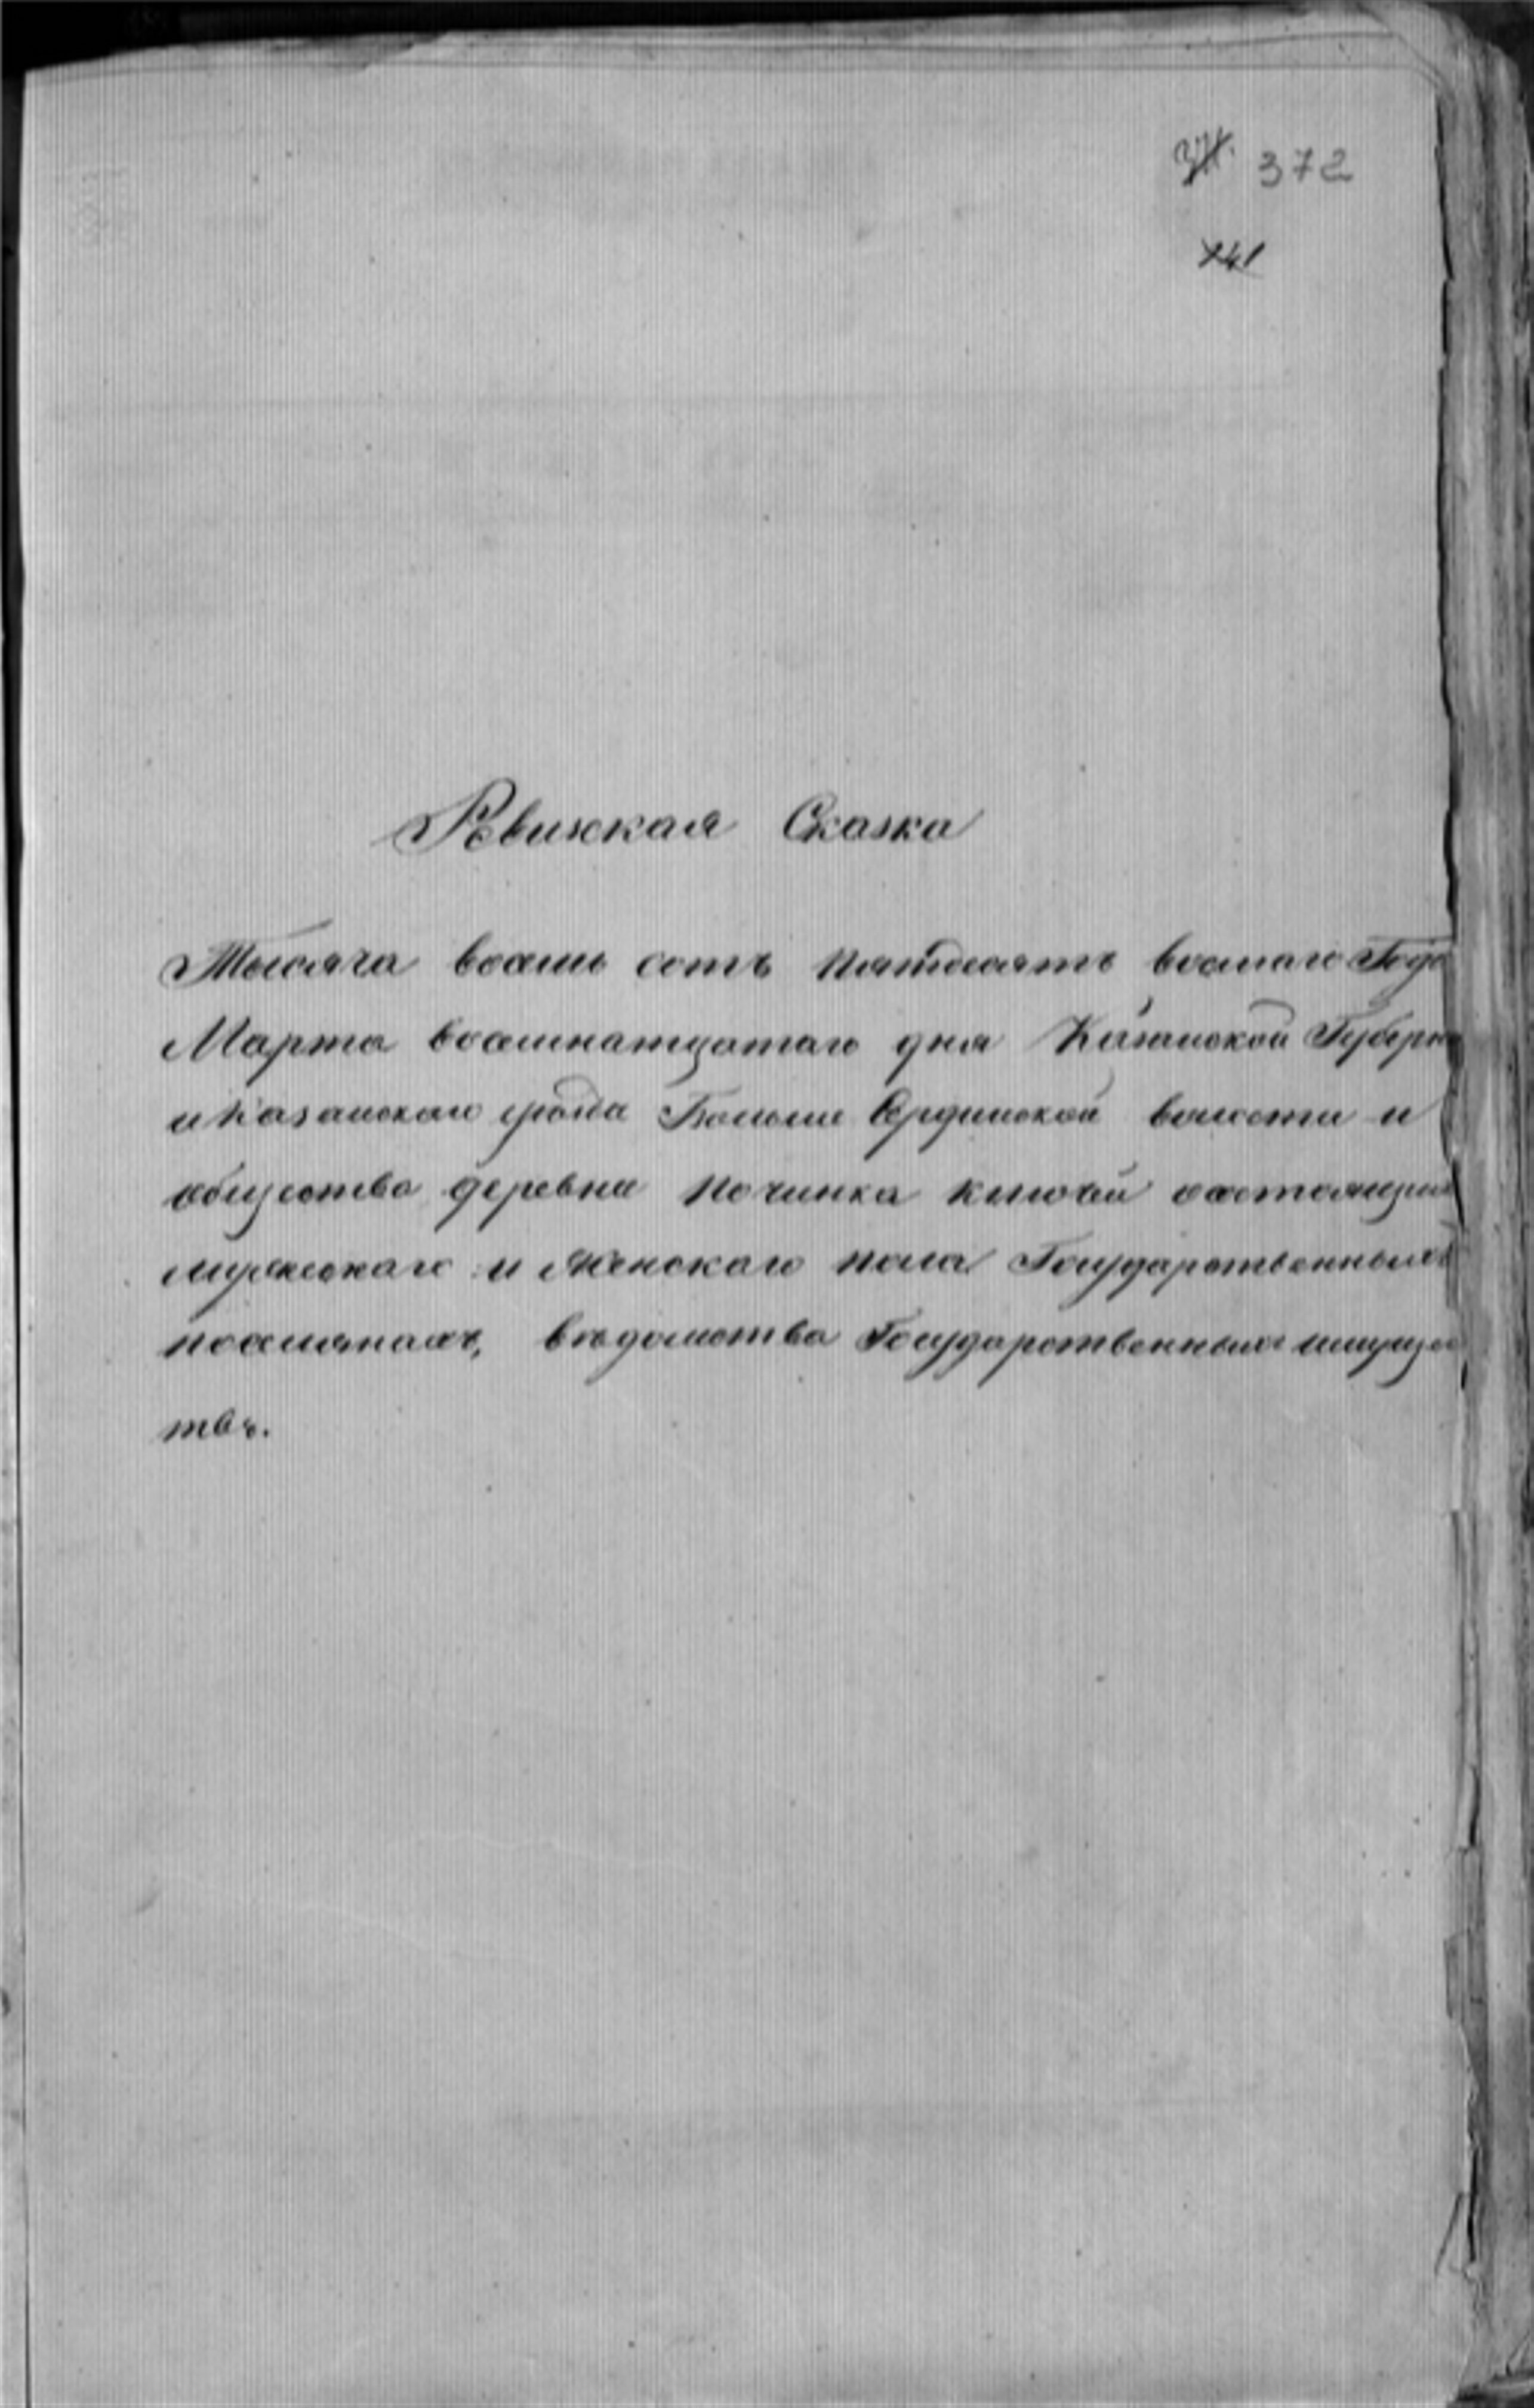 372
241
Ревижская Сказка
Тысяча восемь сотъ пятдесятъ восмаго Года
Марта восемнатцатаго дня Казанской Губерн
и Казанскаго уѣзда Больше Сердинской волости и
общества деревни Починка ключей состоящим
мужескаго и Женскаго пола Государственныхъ
поселянахъ, вѣдомства Государственныхъ имущес
твъ.